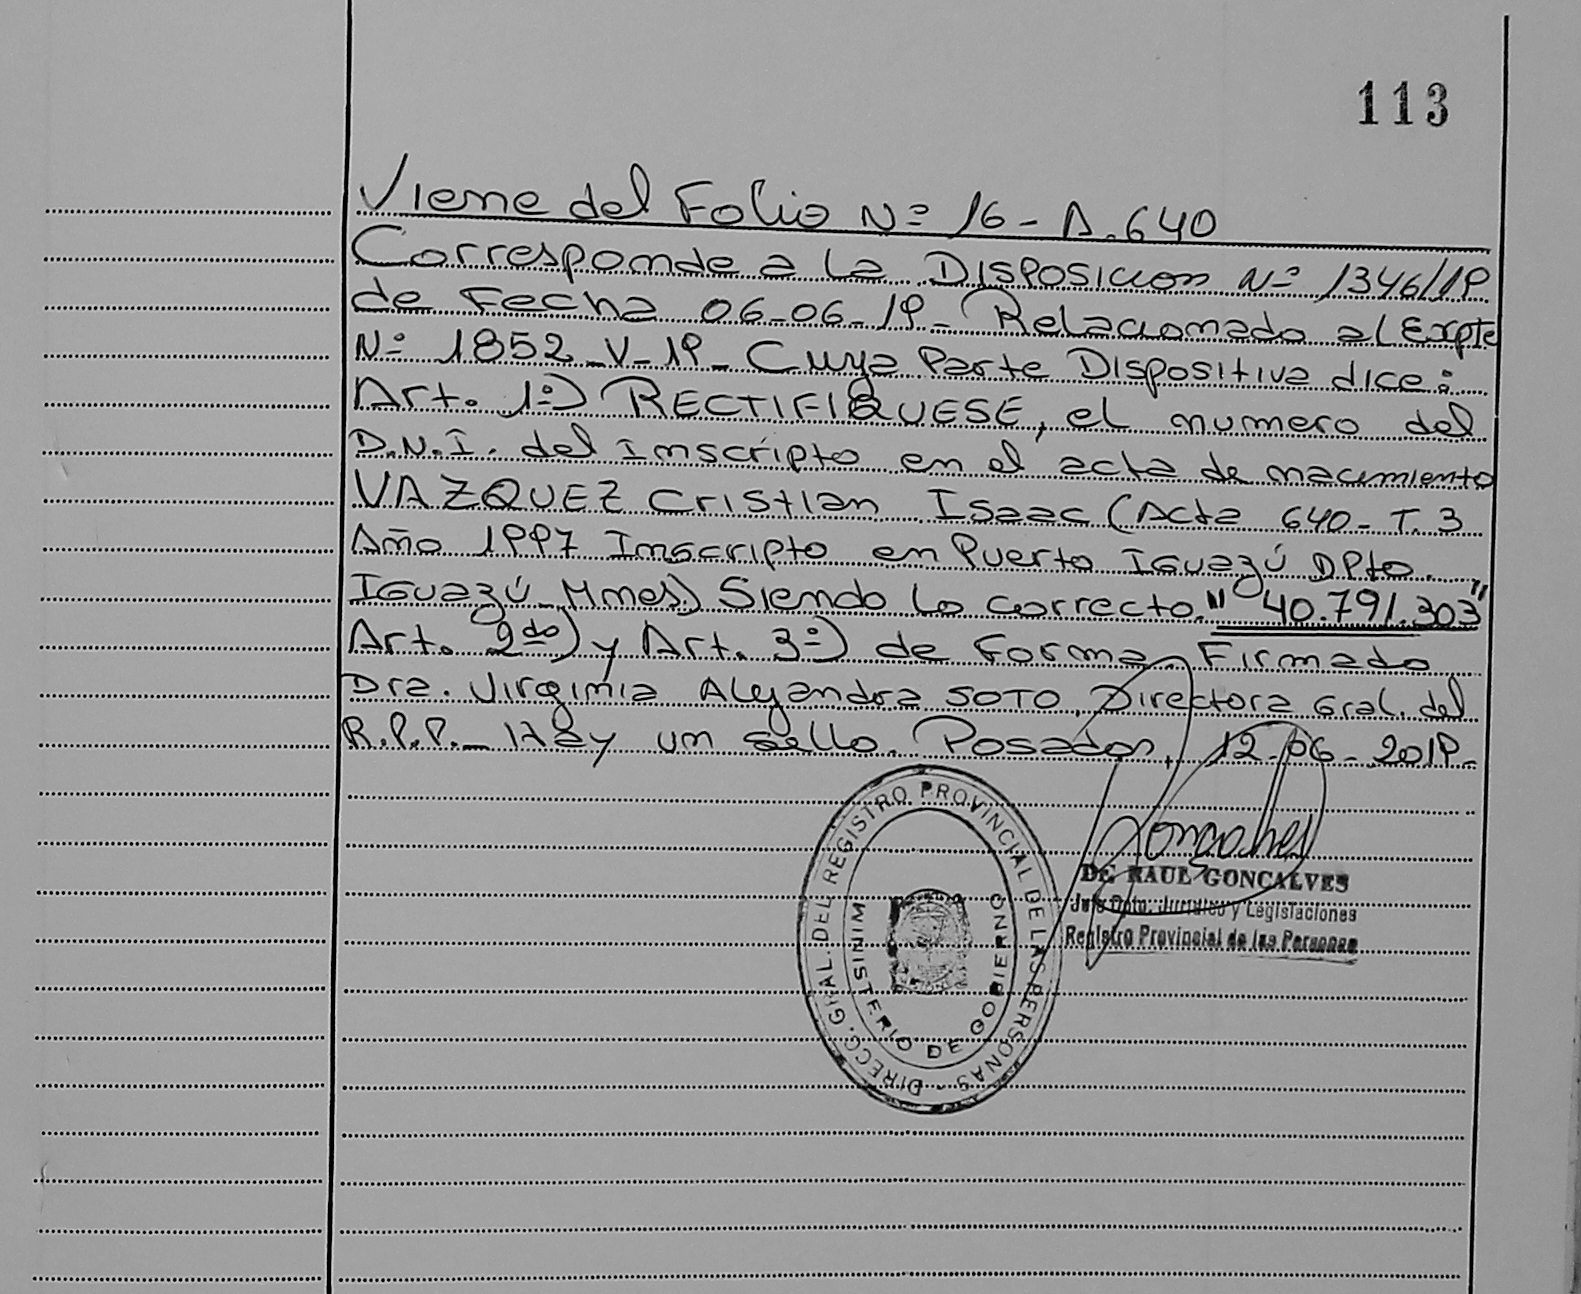 113
Viene del Folio Nº 16 - A. 640
Corresponde a la DISPOSICION Nº 1346/19
de Fecha 06-06-19- Relacionado al Expte
Nº 1852-V-19- Cuya Parte Dispositiva dice:
Art. 1º) RECTIFIQUESE, el numero del
D.N.I. del Inscripto en el acta de nacimiento
VAZQUEZ Cristian Isaac (Acta 640- T. 3
Año 1997 Inscripto en Puerto Iguazú Dpto.
Iguazú- Mnes) Siendo lo correcto. "40.791.303"
Art. 2do) y Art. 3º) de Forma- Firmado
Dra. Virginia Alejandra SOTO, Directora Gral. del
R.P.P.- Hay un sello. Posadas, 12-06-2019-
DIRECC. GRAL. DEL REGISTRO PROVINCIAL DE LAS PERSONAS -
MINISTERIO DE GOBIERNO
Gonçalves
DE RAUL GONCALVES
Jefe Dpto. Jurídico y Legislaciones
Registro Provincial de las Personas